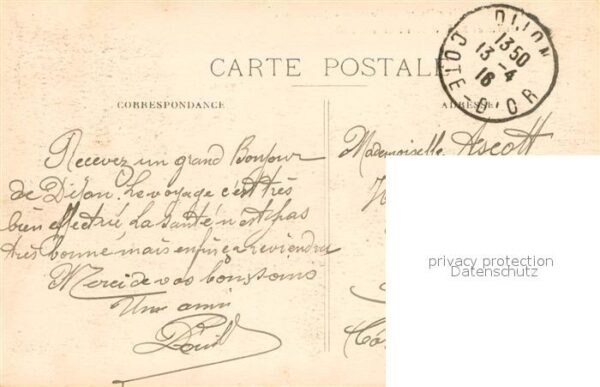 CARTE POSTALE
DIJON
COTE-D'OR
13 50
13 -4
16
CORRESPONDANCE
ADRESSE
Recevez un grand Bonjour
de Dijon. Le voyage c'est très
bien effectué La Santé n'est pas
très bonne mais enfin ça reviendra
Merci de vos bons soins
Une amie
Mademoiselle Ascott
privacy protection
Datenschutz